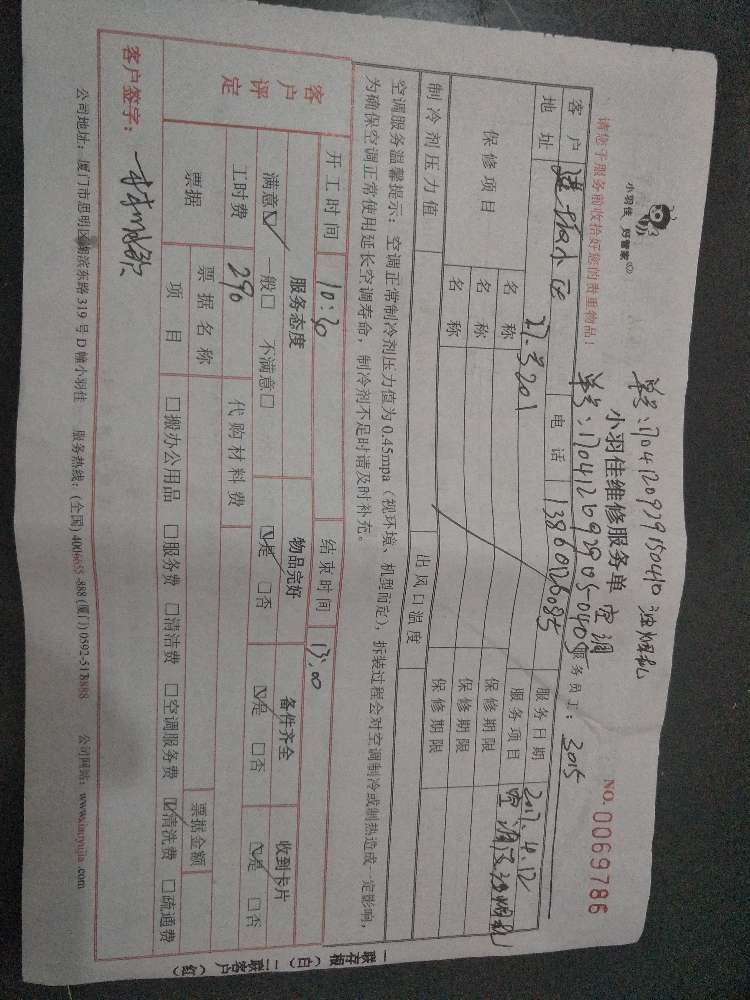 小羽佳 好管家
单号:170412092915040 油烟机
小羽佳维修服务单 空调
NO.0069786
请您于服务前收拾好您的贵重物品!
服务员工: 3015
客户
地址
27.3.201
电话
13860126085
服务日期
2017.4.12
服务项目
保修项目
名称
保修期限
名称
保修期限
名称
保修期限
制冷剂压力值
出风口温度
空调服务温馨提示:空调正常制冷剂压力值为0.45mpa(视环境、机型而定),拆装过程会对空调制冷或制热造成一定影响,
为确保空调正常使用延长空调寿命,制冷剂不足时请及时补充。
开工时间
10:30
结束时间
13:00
客户评定
服务态度
物品完好
备件齐全
收到卡片
满意☑ 一般□ 不满意□
☑是 □否
☑是 □否
☑是 □否
工时费
290
代购材料费
票据
票据名称
票据金额
项目
□搬办公用品 □服务费 □清洁费 □空调服务费 ☑清洗费 □疏通费
客户签字:
公司地址:厦门市思明区湖滨东路319号D幢小羽佳 服务热线:(全国)4006655-888 (厦门)0592-5188888 公司网站:www.xiaoyujia.com
一联存根(白)二联客户(红)